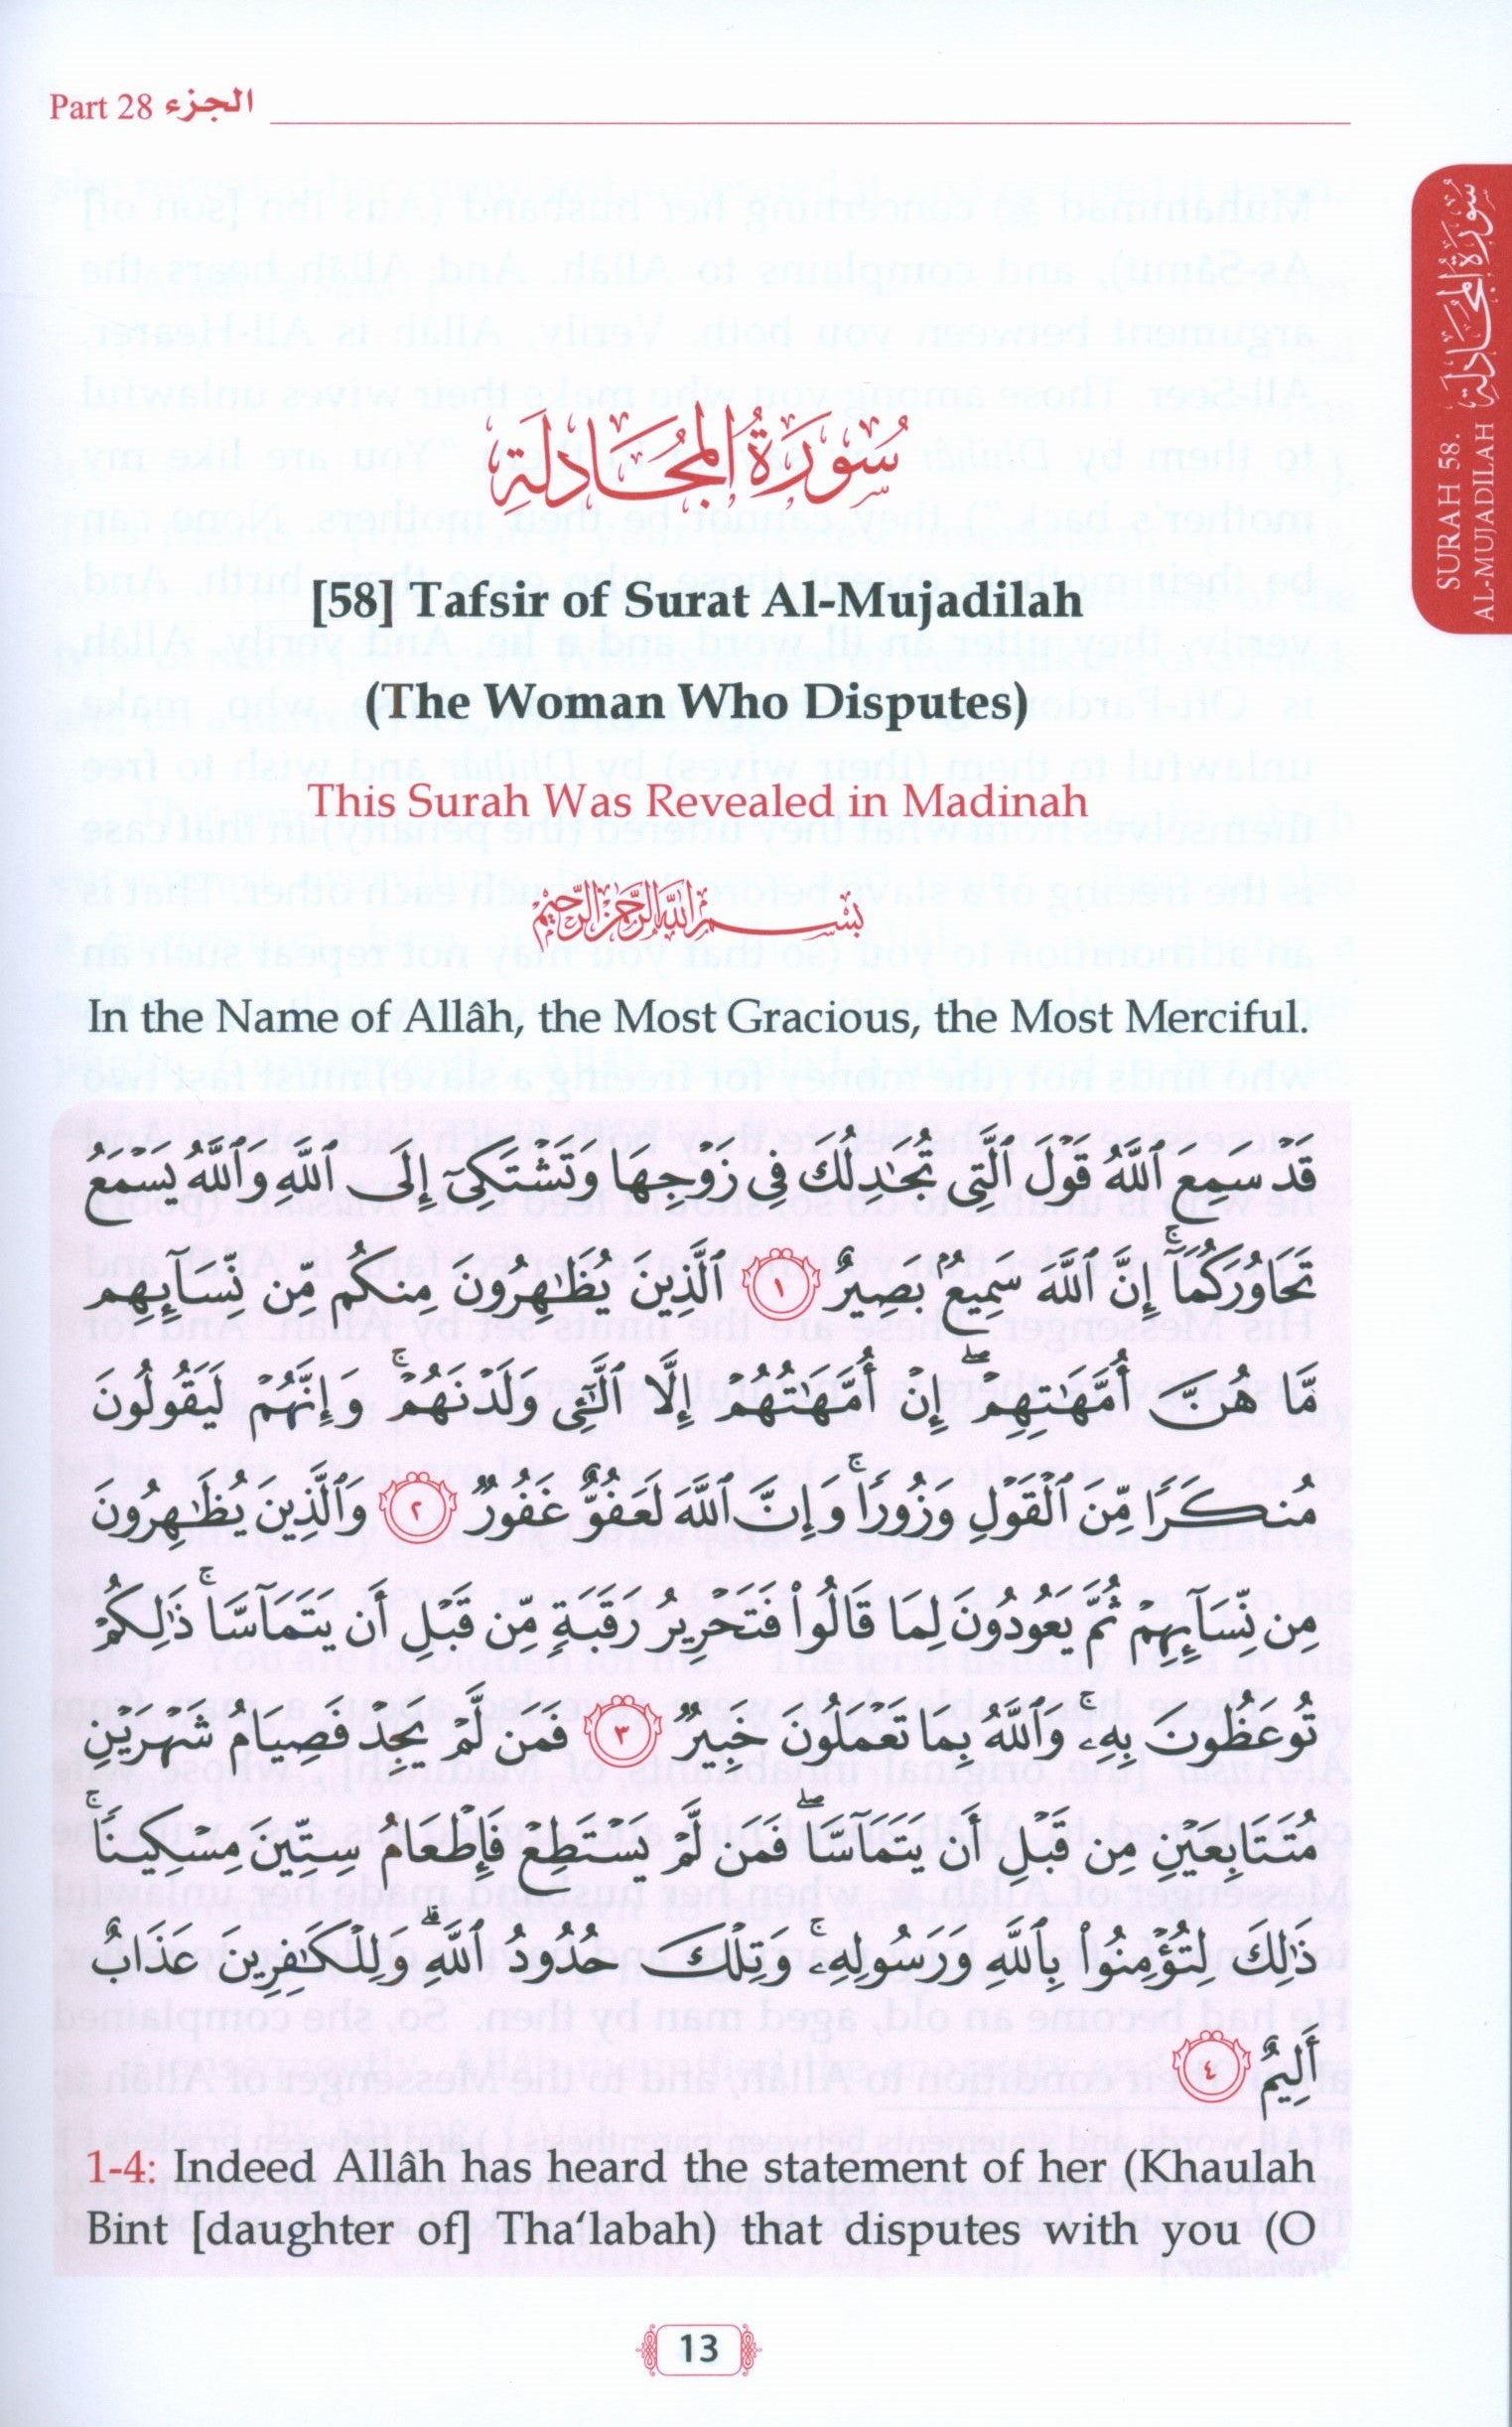 Part 28 الجزء
سُورَةُ المُجَادلَةِ
[58] Tafsir of Surat Al-Mujadilah
(The Woman Who Disputes)
This Surah Was Revealed in Madinah
بِسْمِ اللَّهِ الرَّحْمَٰنِ الرَّحِيمِ
In the Name of Allâh, the Most Gracious, the Most Merciful.
قَدْ سَمِعَ ٱللَّهُ قَوْلَ ٱلَّتِى تُجَٰدِلُكَ فِى زَوْجِهَا وَتَشْتَكِىٓ إِلَى ٱللَّهِ وَٱللَّهُ يَسْمَعُ
تَحَاوُرَكُمَآ ۚ إِنَّ ٱللَّهَ سَمِيعٌۢ بَصِيرٌ ١ ٱلَّذِينَ يُظَٰهِرُونَ مِنكُم مِّن نِّسَآئِهِم
مَّا هُنَّ أُمَّهَٰتِهِمْ ۖ إِنْ أُمَّهَٰتُهُمْ إِلَّا ٱلَّٰٓـِٔى وَلَدْنَهُمْ ۚ وَإِنَّهُمْ لَيَقُولُونَ
مُنكَرًا مِّنَ ٱلْقَوْلِ وَزُورًا ۚ وَإِنَّ ٱللَّهَ لَعَفُوٌّ غَفُورٌ ٢ وَٱلَّذِينَ يُظَٰهِرُونَ
مِن نِّسَآئِهِمْ ثُمَّ يَعُودُونَ لِمَا قَالُوا۟ فَتَحْرِيرُ رَقَبَةٍ مِّن قَبْلِ أَن يَتَمَآسَّا ۚ ذَٰلِكُمْ
تُوعَظُونَ بِهِۦ ۚ وَٱللَّهُ بِمَا تَعْمَلُونَ خَبِيرٌ ٣ فَمَن لَّمْ يَجِدْ فَصِيَامُ شَهْرَيْنِ
مُتَتَابِعَيْنِ مِن قَبْلِ أَن يَتَمَآسَّا ۖ فَمَن لَّمْ يَسْتَطِعْ فَإِطْعَامُ سِتِّينَ مِسْكِينًا ۚ
ذَٰلِكَ لِتُؤْمِنُوا۟ بِٱللَّهِ وَرَسُولِهِۦ ۚ وَتِلْكَ حُدُودُ ٱللَّهِ ۗ وَلِلْكَٰفِرِينَ عَذَابٌ
أَلِيمٌ ٤
1-4: Indeed Allâh has heard the statement of her (Khaulah
Bint [daughter of] Tha‘labah) that disputes with you (O
13
سُورَةُ المُجَادلَةِ
SURAH 58.
AL-MUJADILAH